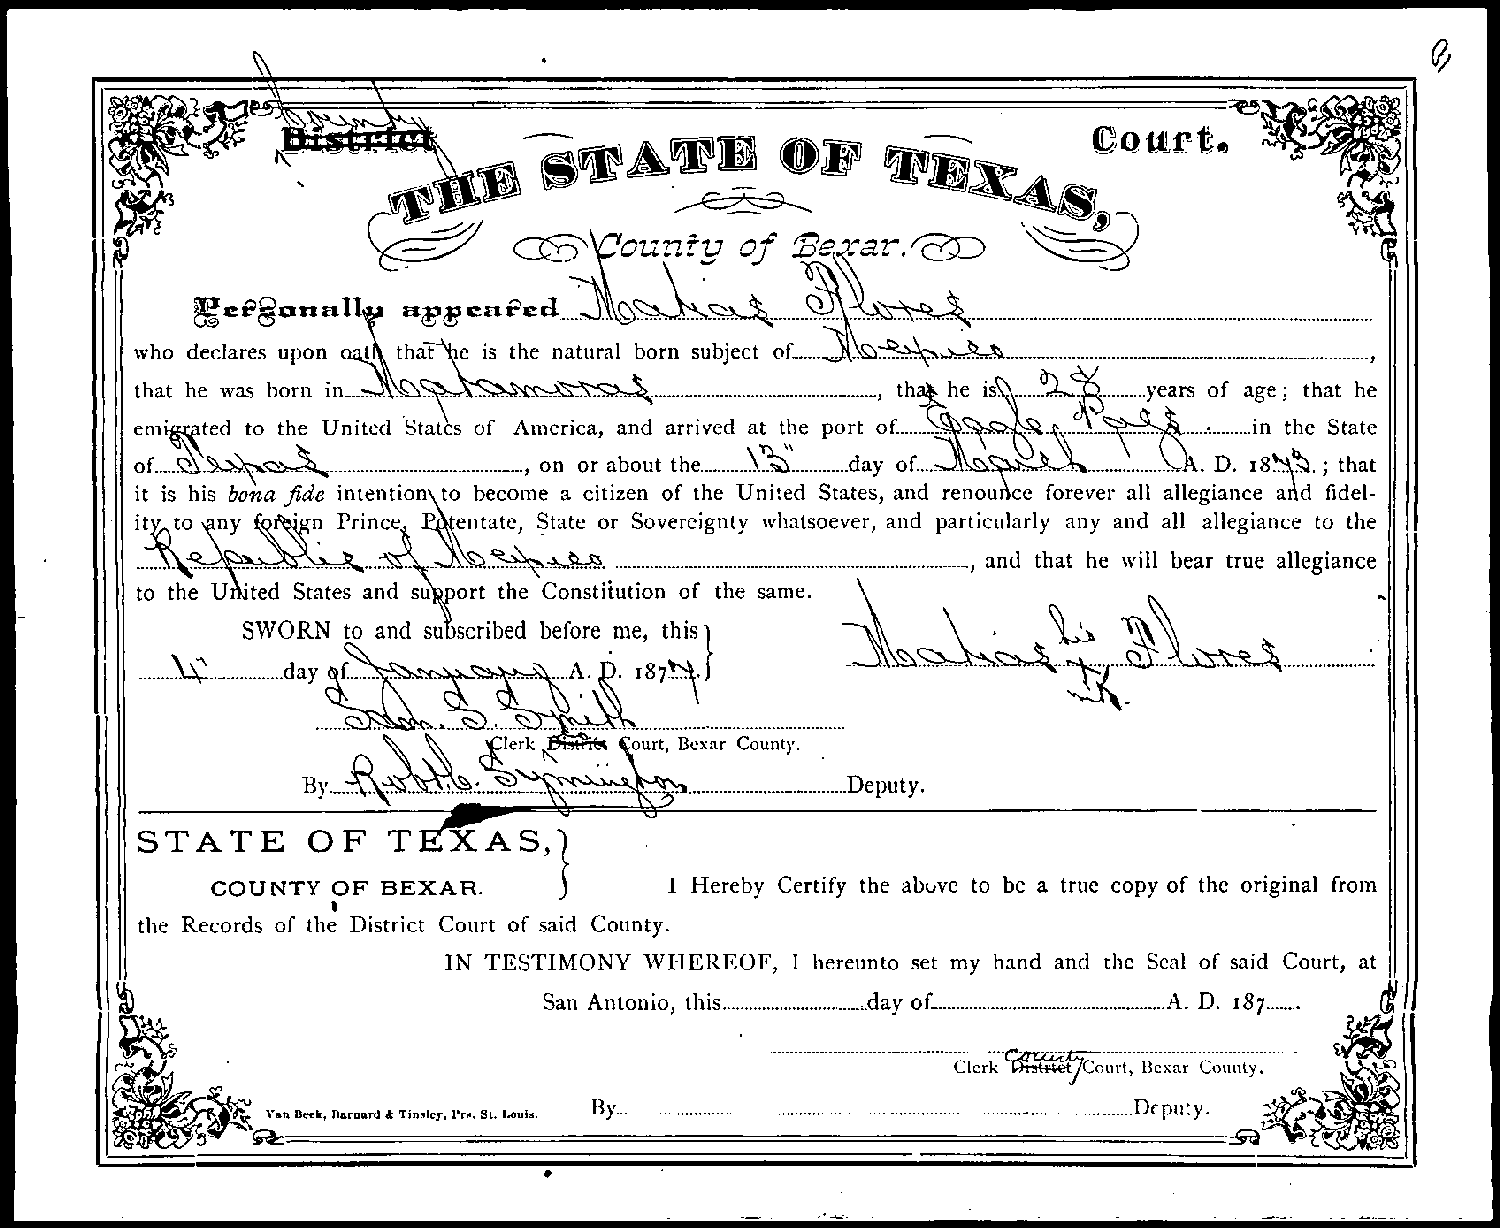 County
District Court.
THE STATE OF TEXAS,
County of Bexar.
Personally appeared Matias Flores
who declares upon oath that he is the natural born subject of Mexico,
that he was born in Matamoras, that he is 28 years of age; that he
emigrated to the United States of America, and arrived at the port of Eagle Pass in the State
of Texas, on or about the 13" day of March A. D. 1873.; that
it is his bona fide intention to become a citizen of the United States, and renounce forever all allegiance and fidel-
ity to any foreign Prince, Potentate, State or Sovereignty whatsoever, and particularly any and all allegiance to the
Republic of Mexico, and that he will bear true allegiance
to the United States and support the Constitution of the same.
SWORN to and subscribed before me, this
4" day of January A. D. 1874.
Matias his x Flores
mk.
Sam. S. Smith
Clerk District Court, Bexar County.
By Robt C. Symington Deputy.
STATE OF TEXAS,
COUNTY OF BEXAR.
I Hereby Certify the above to be a true copy of the original from
the Records of the District Court of said County.
IN TESTIMONY WHEREOF, I hereunto set my hand and the Seal of said Court, at
San Antonio, this day of A. D. 187
County
Clerk District Court, Bexar County.
Van Beek, Barnard & Tinsley, Prs. St. Louis. By Deputy.